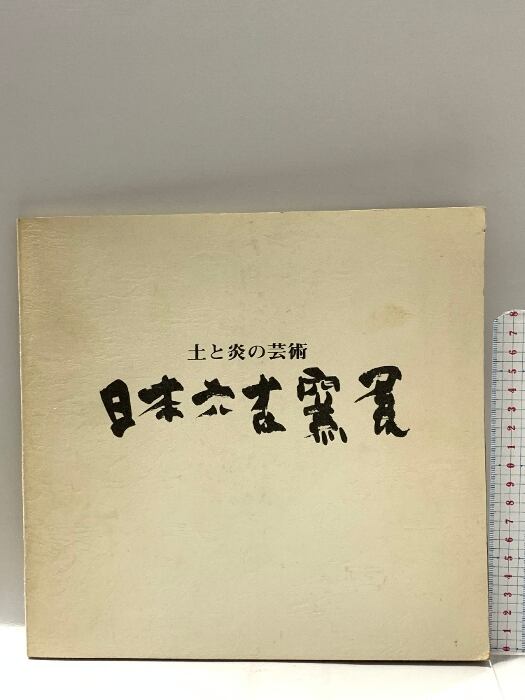 土と炎の芸術
日本六古窯展
0 1 2 3 4 5 6 7 8 9 0 1 2 3 4 5 6 7 8